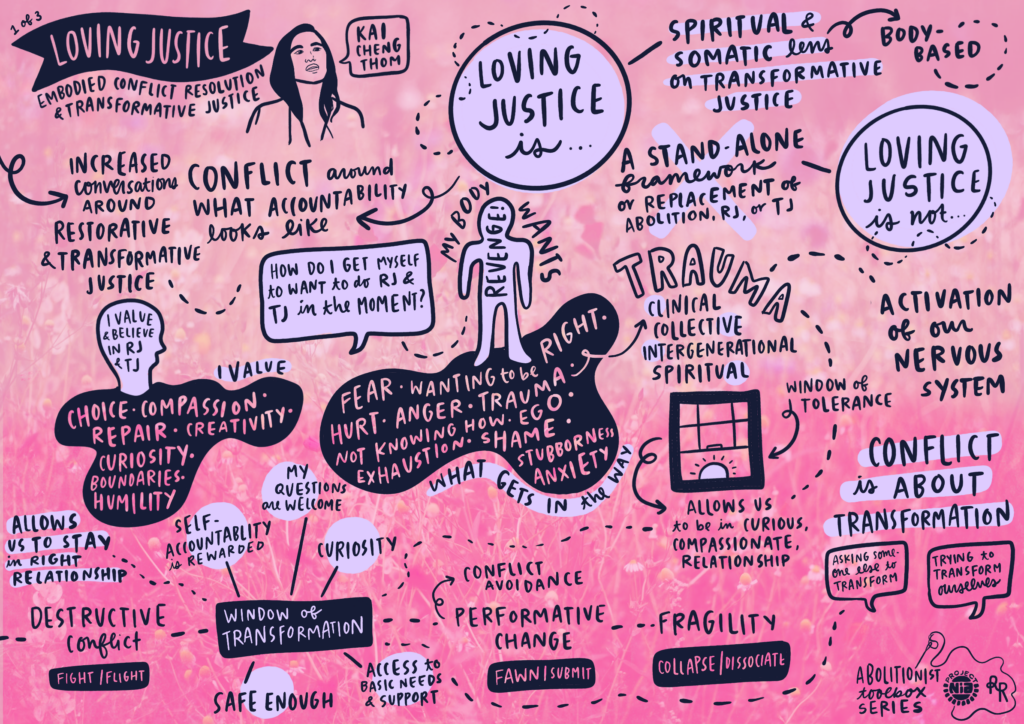 1 of 3
LOVING JUSTICE
EMBODIED CONFLICT RESOLUTION
& TRANSFORMATIVE JUSTICE
KAI
CHENG
THOM
LOVING
JUSTICE
is...
SPIRITUAL &
SOMATIC lens
on TRANSFORMATIVE
JUSTICE
BODY-
BASED
INCREASED
conversations
AROUND
RESTORATIVE
& TRANSFORMATIVE
JUSTICE
CONFLICT around
WHAT ACCOUNTABILITY
looks like
A STAND-ALONE
framework
or REPLACEMENT of
ABOLITION, RJ, or TJ
LOVING
JUSTICE
is not...
HOW DO I GET MYSELF
to WANT to do RJ &
TJ in the MOMENT?
MY BODY
WANTS
REVENGE!
RIGHT.
I VALUE
& BELIEVE
IN RJ
& TJ
I VALUE
CHOICE · COMPASSION ·
REPAIR · CREATIVITY ·
CURIOSITY ·
BOUNDARIES ·
HUMILITY
FEAR · WANTING to be
HURT · ANGER · TRAUMA ·
NOT KNOWING HOW · EGO ·
EXHAUSTION · SHAME ·
STUBBORNESS
ANXIETY
WHAT GETS IN the WAY
TRAUMA
CLINICAL
COLLECTIVE
INTERGENERATIONAL
SPIRITUAL
ACTIVATION
of our
NERVOUS
SYSTEM
WINDOW of
TOLERANCE
ALLOWS US
to be in CURIOUS,
COMPASSIONATE,
RELATIONSHIP
CONFLICT
is ABOUT
TRANSFORMATION
ASKING SOME-
ONE ELSE to
TRANSFORM
TRYING to
TRANSFORM
ourselves
ALLOWS
US TO STAY
in RIGHT
RELATIONSHIP
SELF-
ACCOUNTABLITY
is REWARDED
MY
QUESTIONS
are WELCOME
CURIOSITY
WINDOW of
TRANSFORMATION
SAFE ENOUGH
ACCESS to
BASIC NEEDS
& SUPPORT
DESTRUCTIVE
conflict
FIGHT/FLIGHT
CONFLICT
AVOIDANCE
PERFORMATIVE
CHANGE
FAWN/SUBMIT
FRAGILITY
COLLAPSE/DISSOCIATE
ABOLITIONIST
toolbox
SERIES
PROJECT
NIA
RR